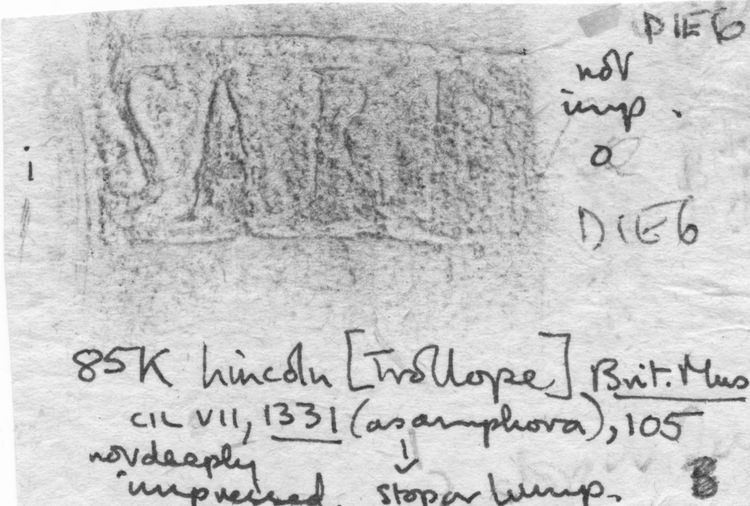 SARI
DIE 6
not
imp.
o
i
DIE 6
85K Lincoln [Trollope] Brit. Mus
CIL VII, 1331 (as amphora), 105
not deeply
impressed. stop or lump.
B